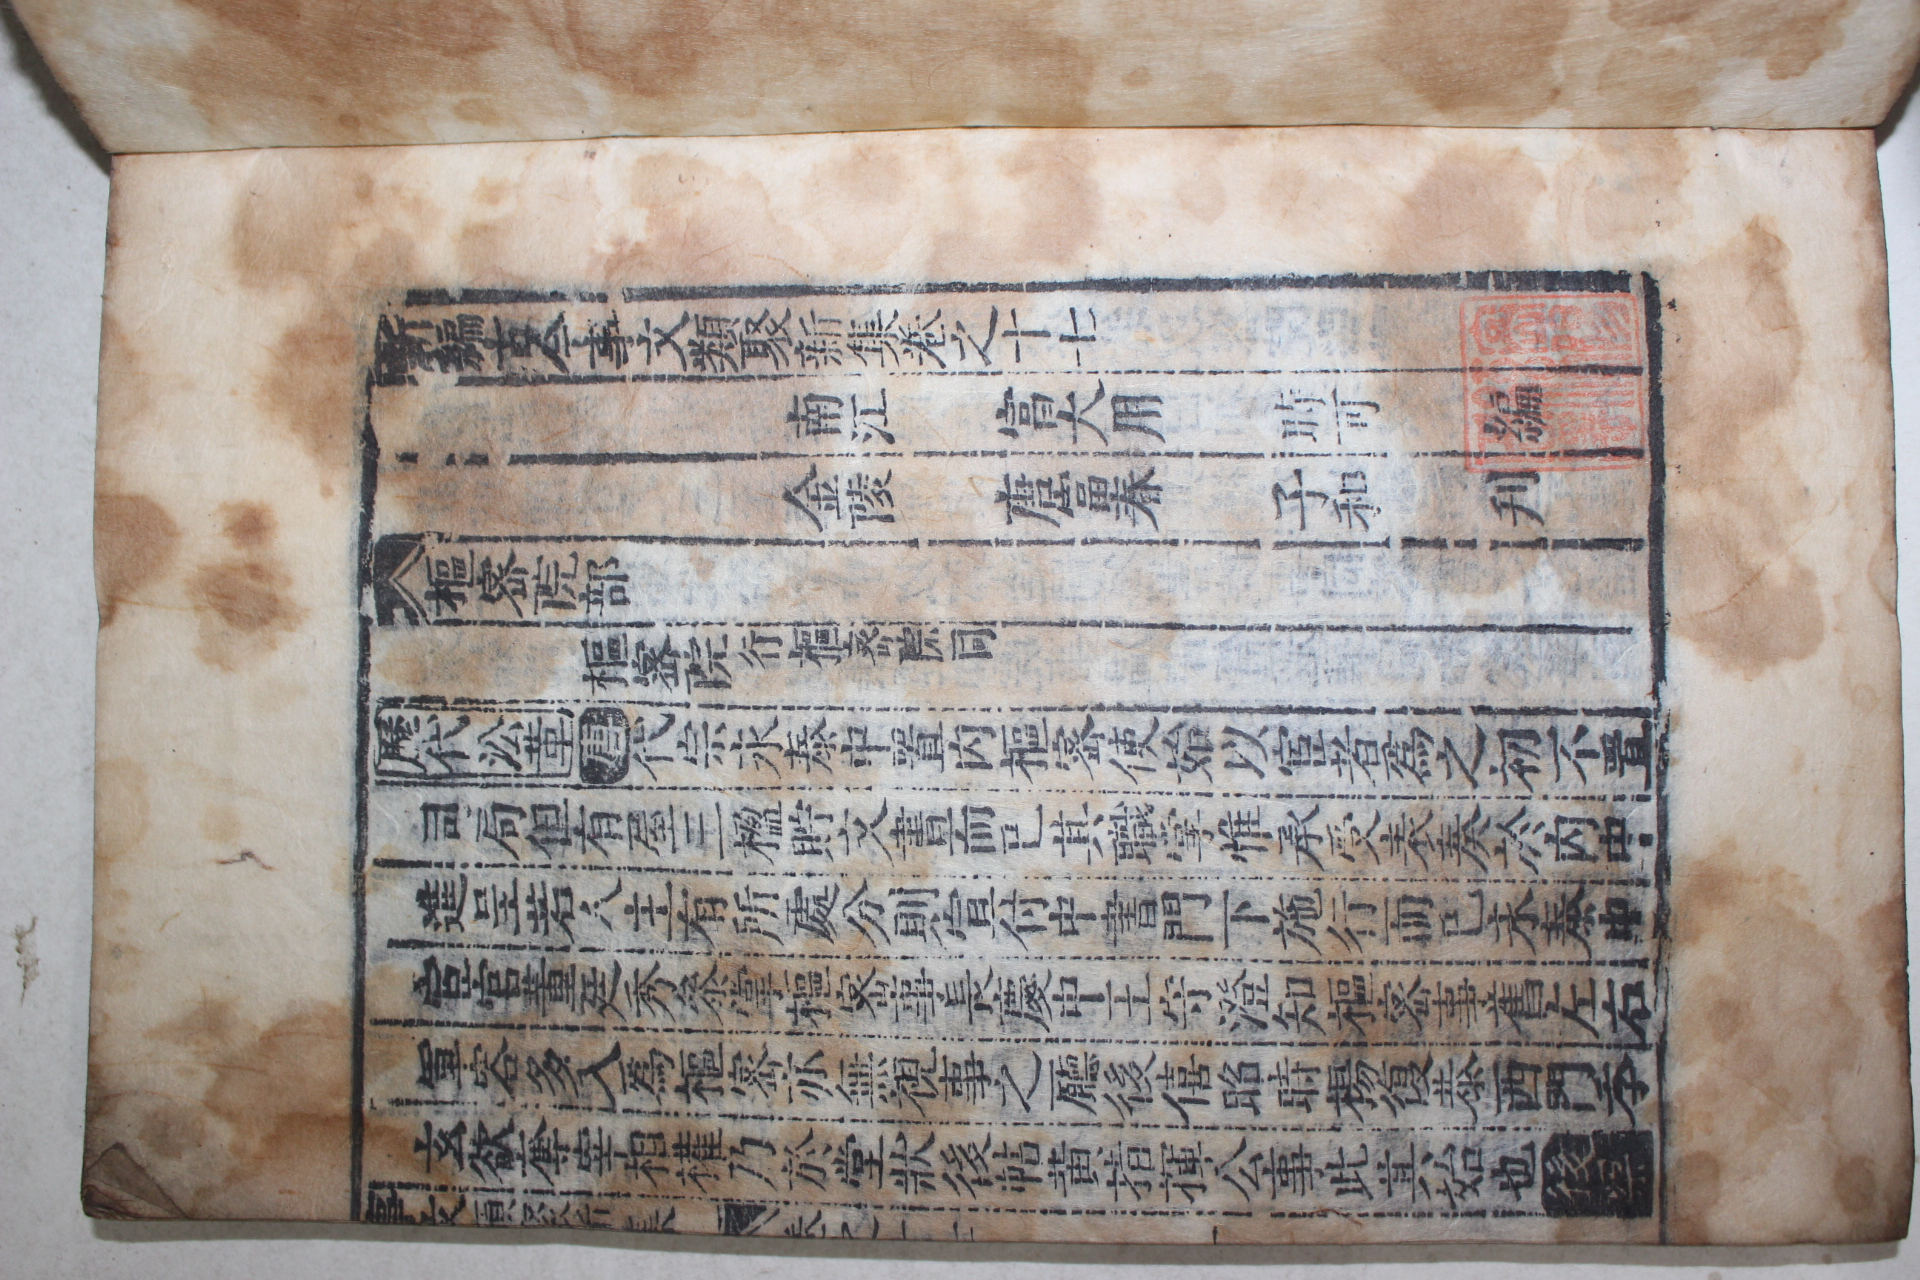 新編古今事文類聚新集卷之十七
南江 富大用 時可 編
金陵 唐富春 子和 刋
樞密院部
樞密院 行樞密院同
歷代沿革 唐代宗永泰中置内樞密使始以宦者爲之初不置
司局但有屋三楹貯文書而已其職掌惟承受表奏於内中
進呈若人主有所處分則宣付中書門下施行而已永泰中
宦官董廷秀叅掌樞密事長慶中王守澄知樞密事舊左右
軍容多入爲樞密亦無視事之廳後僖昭時楊復恭西門季
玄欲奪宰相權乃於堂狀後帖黄指揮公事此其始也 後梁
事文類聚新集 卷之十七